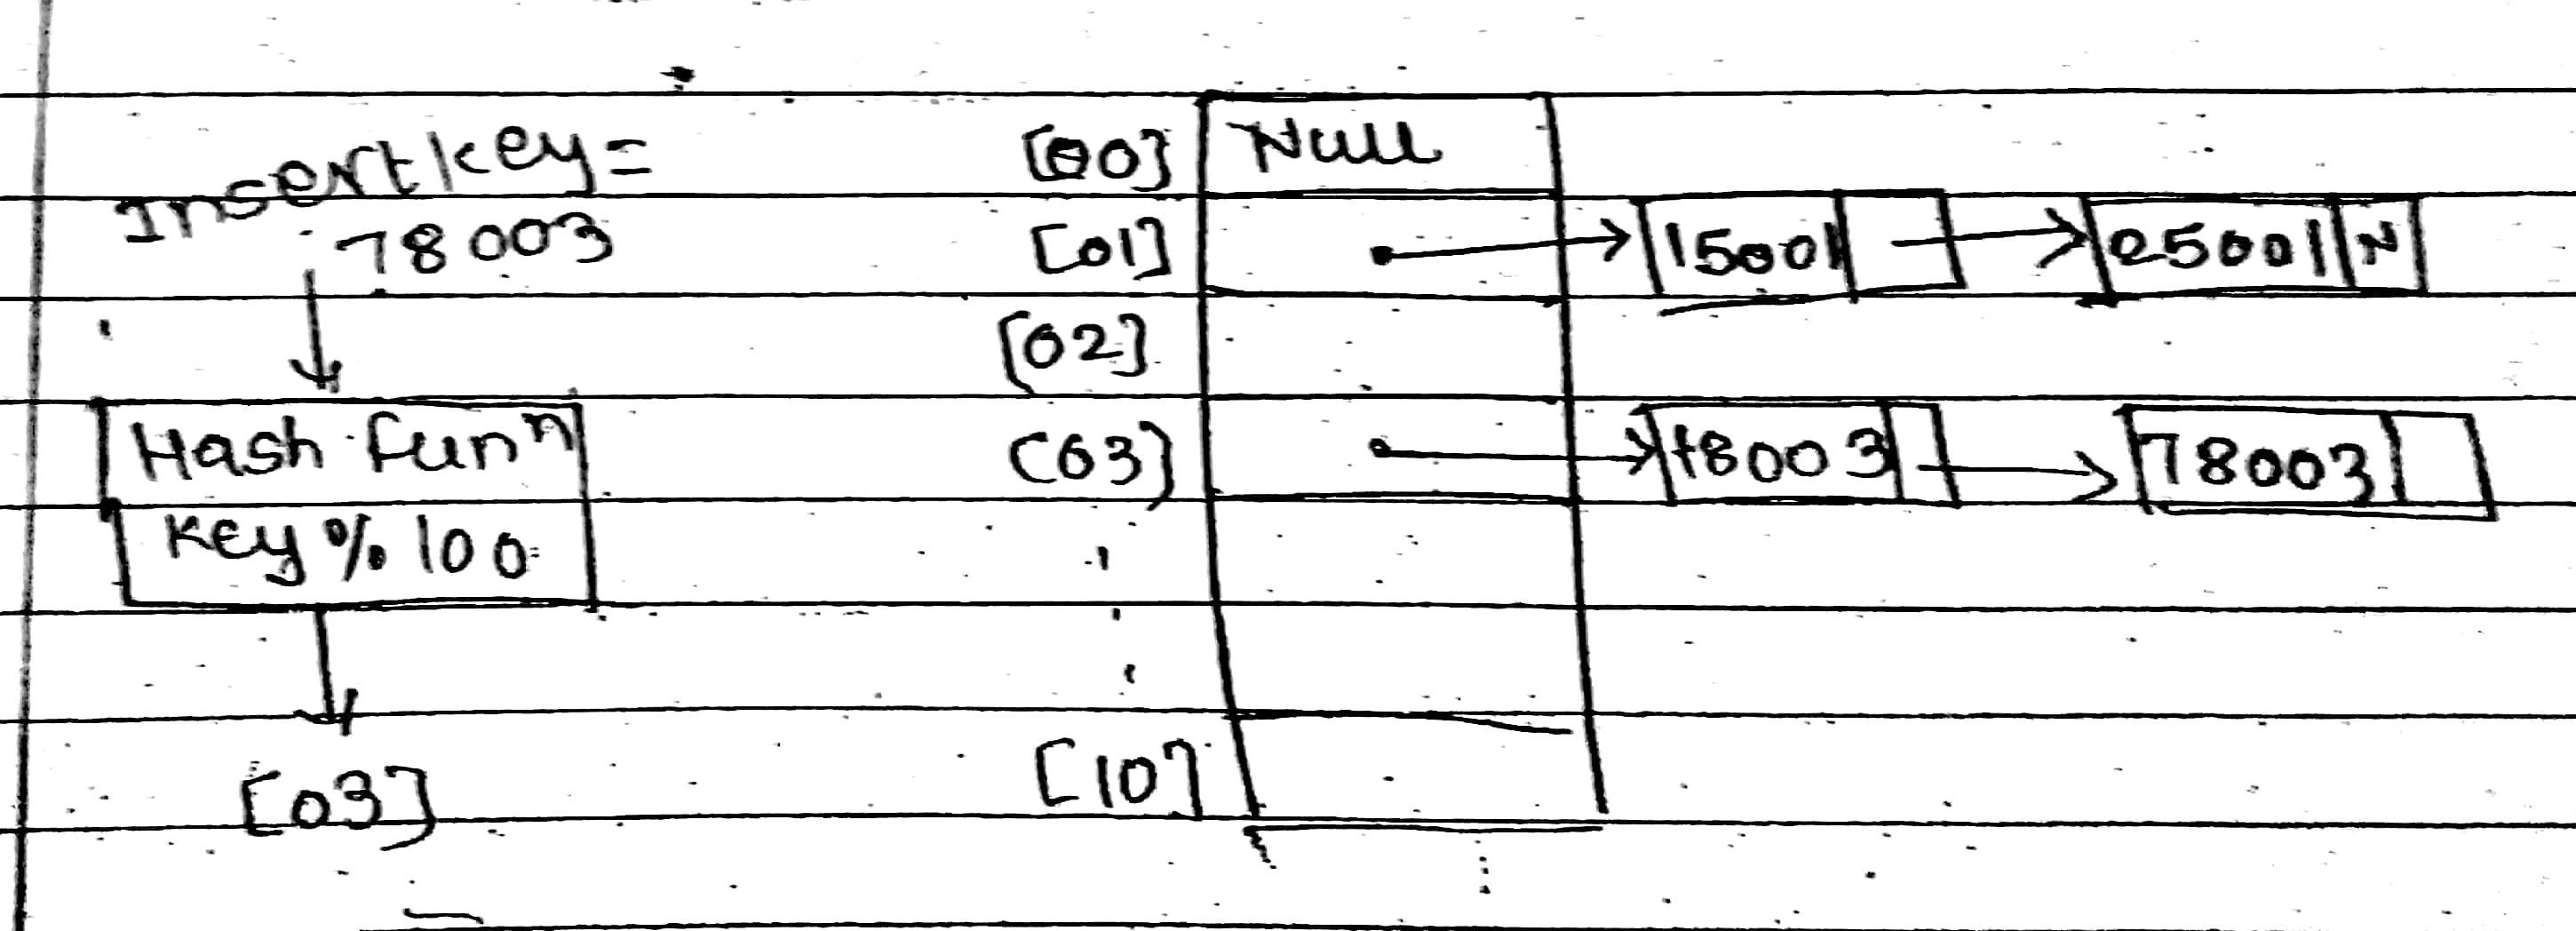 Insert key =
78003
Hash funⁿ
key % 100
[03]
[00] Null
[01] 15001 25001 N
[02]
[03] 18003 78003
[10]